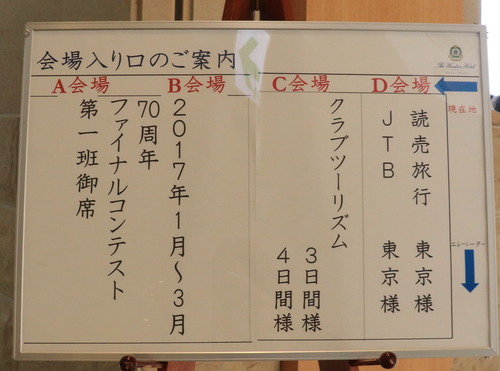 会場入り口のご案内
The Windsor Hotel
A会場 B会場 C会場 D会場
現在地
読売旅行 東京様
JTB 東京様
クラブツーリズム
3日間様
4日間様
2017年1月〜3月
70周年
ファイナルコンテスト
第一班御席
エレベーター